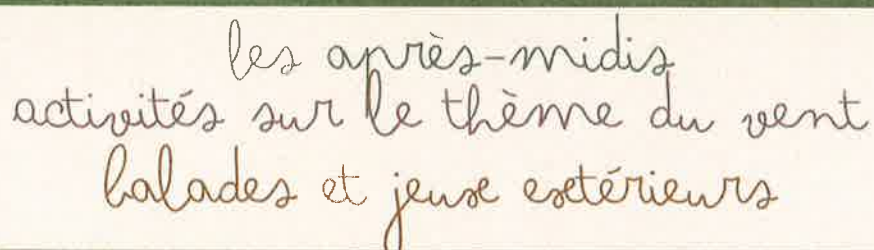 les après-midis
activités sur le thème du vent
balades et jeux extérieurs